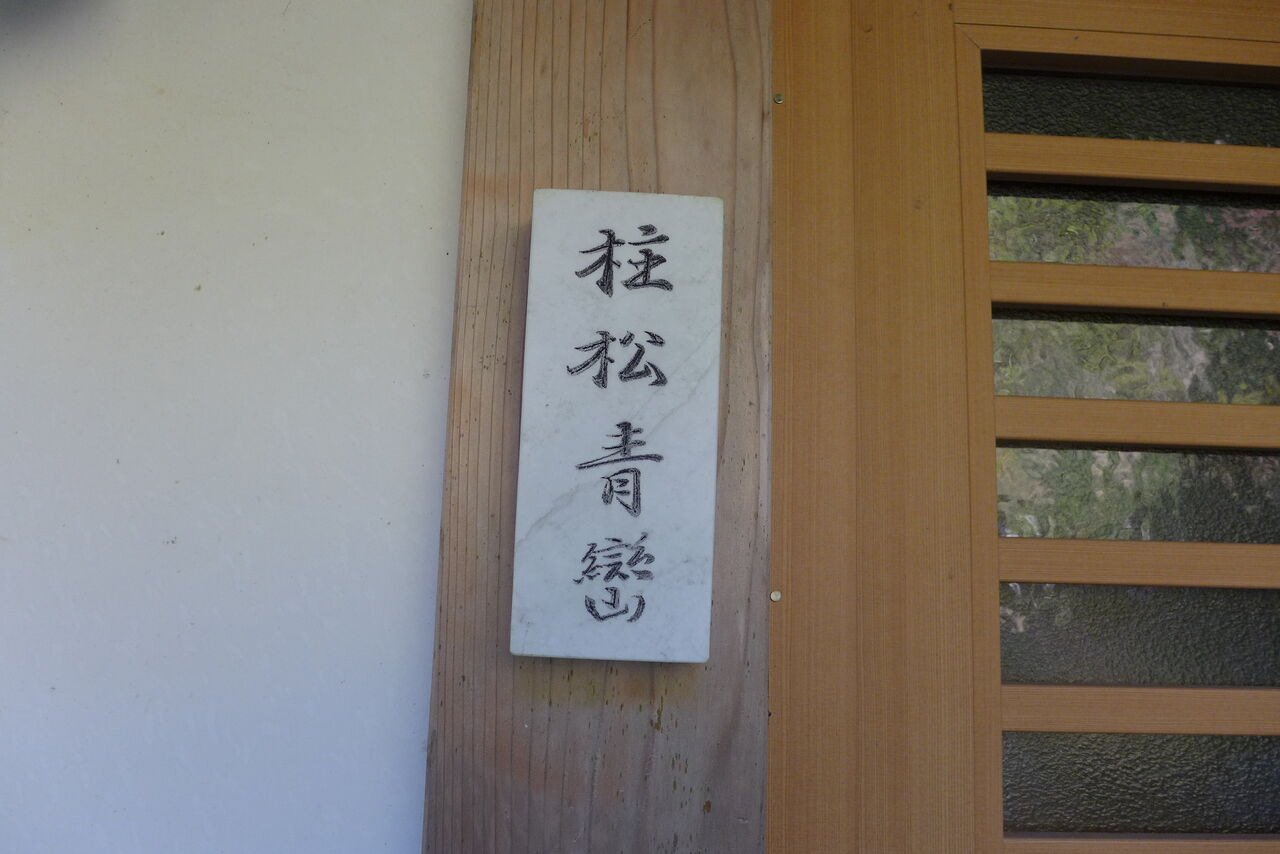 柱松青巒